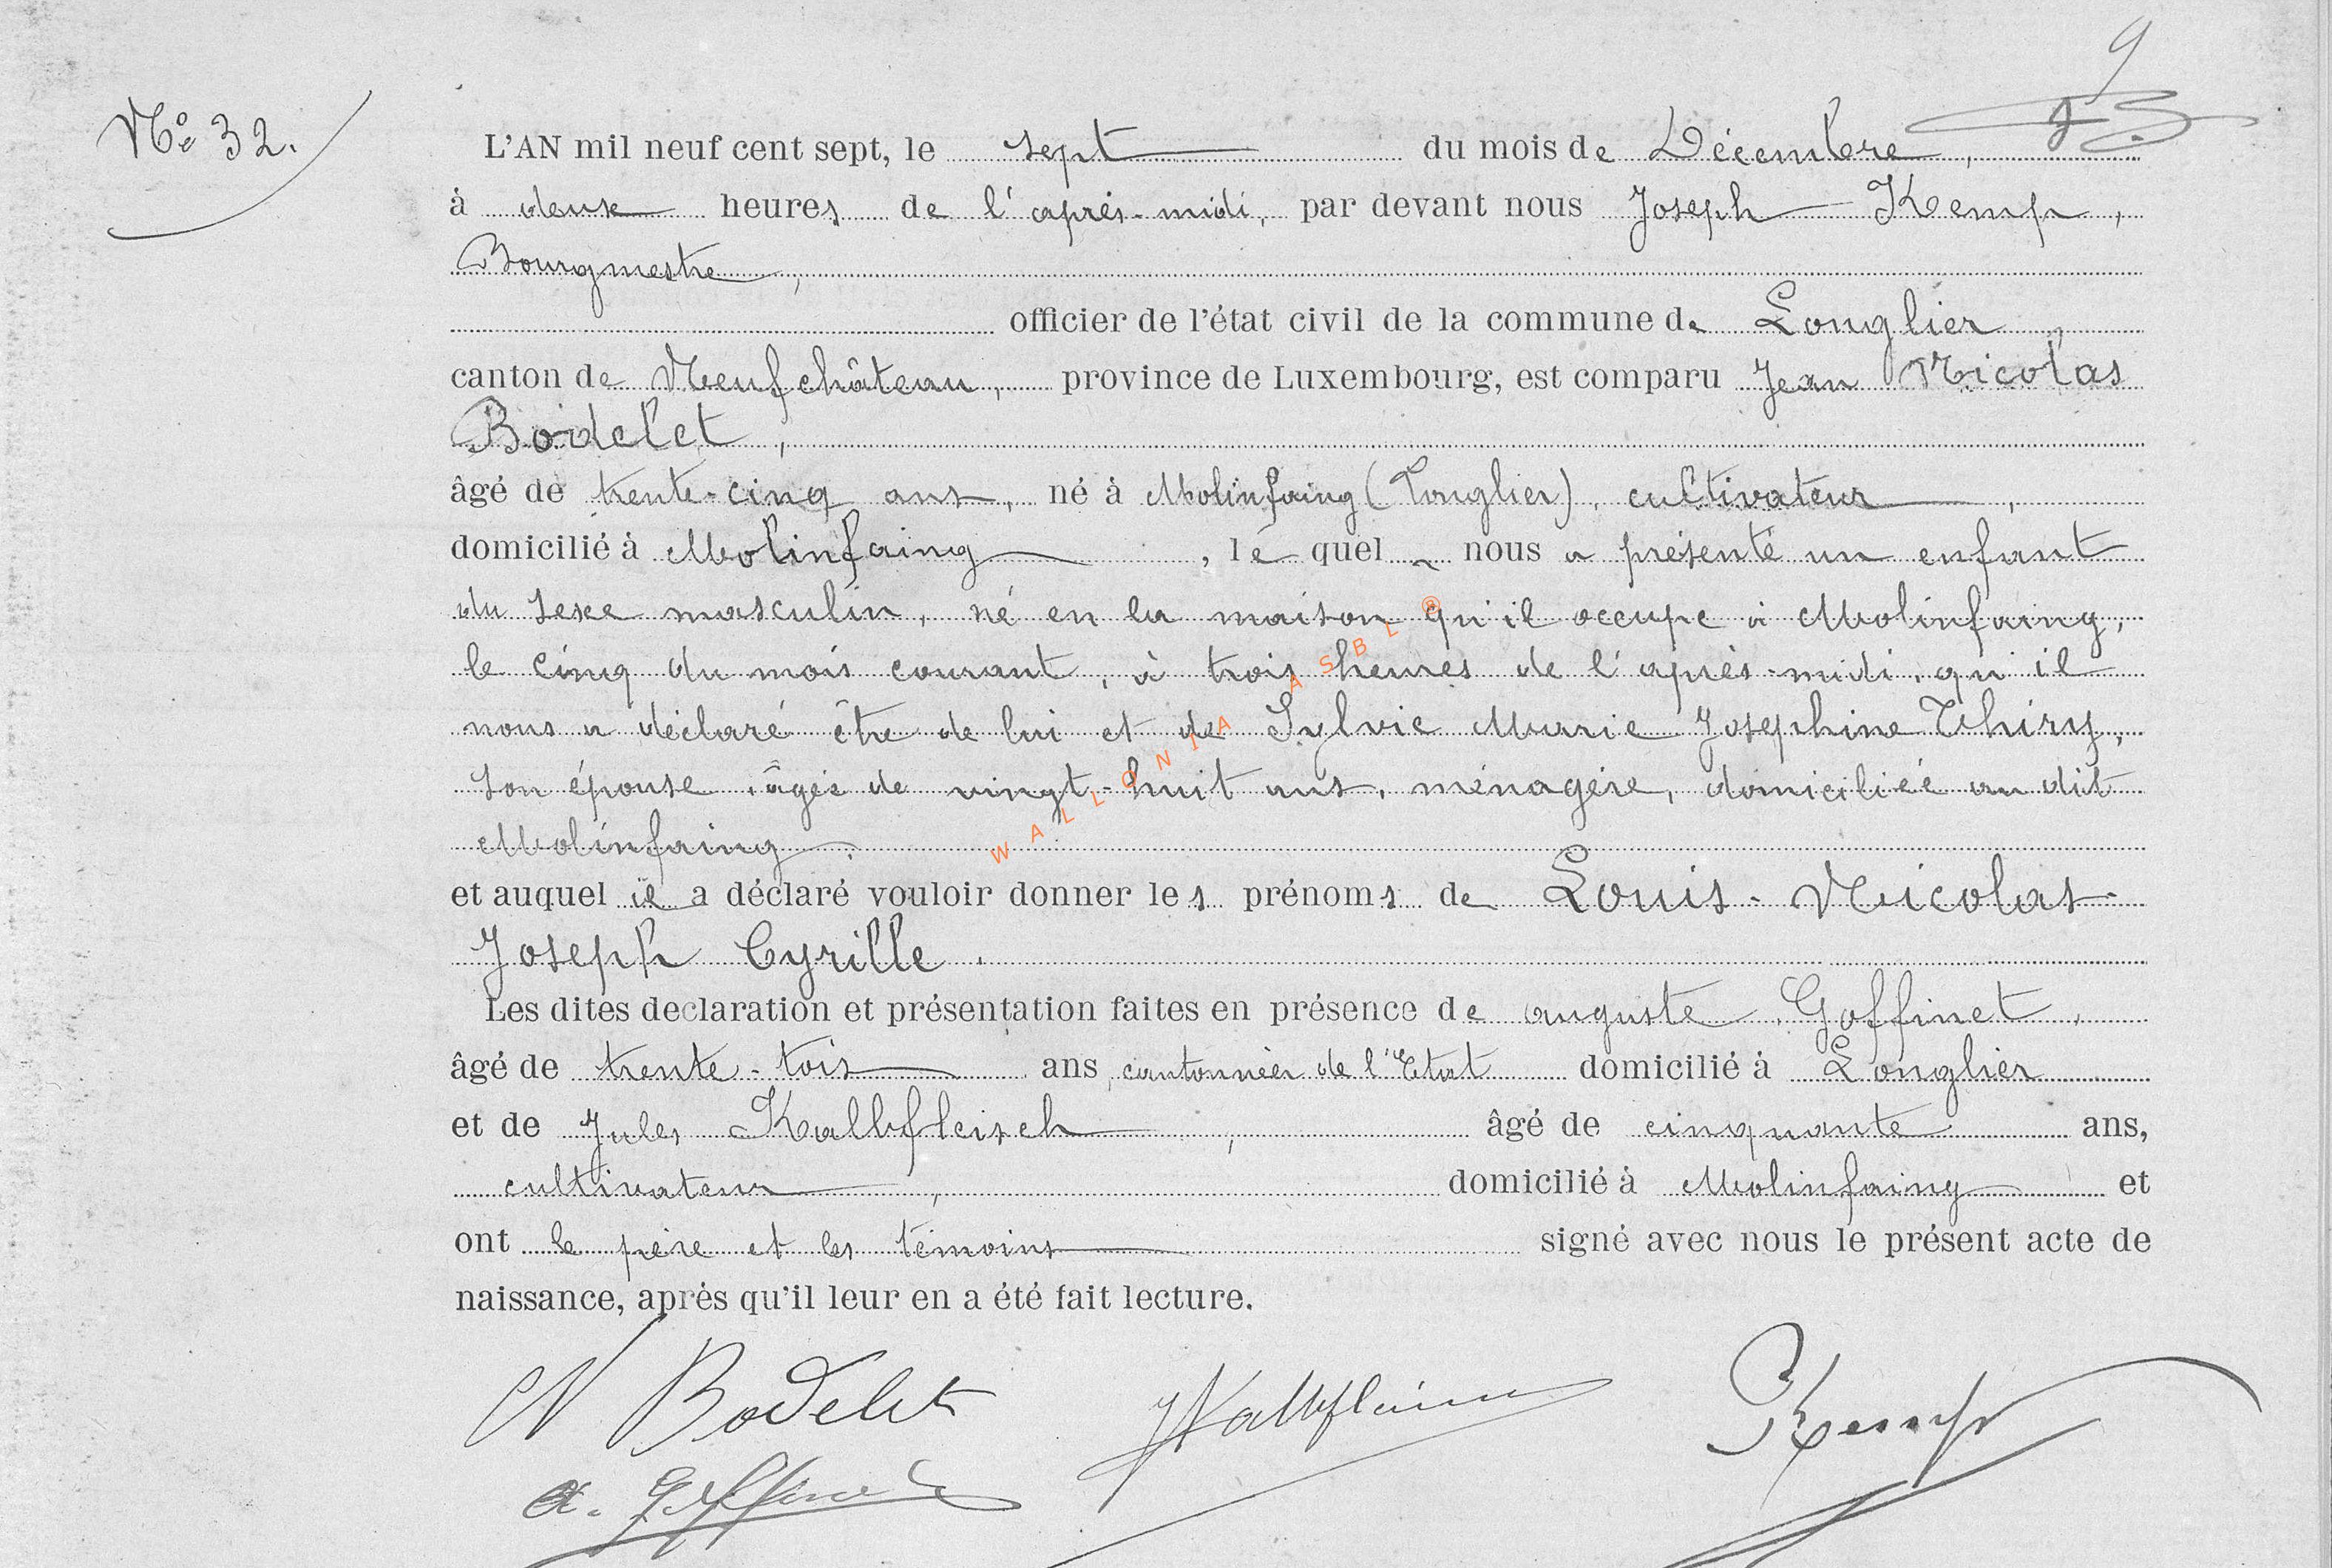 9
N° 32.
L'AN mil neuf cent sept, le sept du mois de Décembre,
à deux heures de l'après-midi, par devant nous Joseph Kemp,
Bourgmestre,
officier de l'état civil de la commune de Longlier,
canton de Neufchâteau, province de Luxembourg, est comparu Jean Nicolas
Bodelet,
âgé de trente-cinq ans, né à Molinfaing (Longlier), cultivateur,
domicilié à Molinfaing, le quel nous a présenté un enfant
du sexe masculin, né en la maison qu'il occupe à Molinfaing,
le cinq du mois courant, à trois heures de l'après-midi, qu'il
nous a déclaré être de lui et de Sylvie Marie Josephine Thiry,
son épouse, âgée de vingt-huit ans, ménagère, domiciliée au dit
Molinfaing.
et auquel il a déclaré vouloir donner les prénoms de Louis-Nicolas-
Joseph Cyrille.
Les dites declaration et présentation faites en présence de auguste Goffinet,
âgé de trente-tois ans, cantonnier de l'Etat domicilié à Longlier
et de Jules Kallbfleisch, âgé de cinquante ans,
cultivateur, domicilié à Molinfaing et
ont le père et les témoins signé avec nous le présent acte de
naissance, après qu'il leur en a été fait lecture.
N Bodelet Kemp
a. Goffinet
WALLONIA ASBL ®